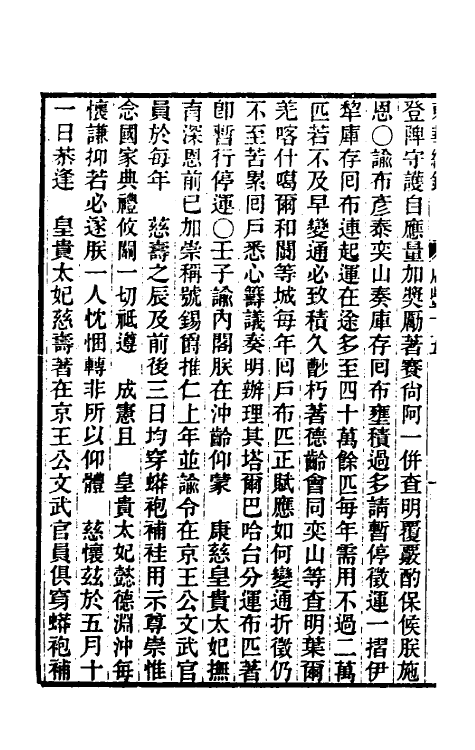 登陴守護自應量加獎勵著賽尙阿一併查明覆覈酌保候朕施
恩○諭布彥泰奕山奏庫存回布壅積過多請暫停徵運一摺伊
犂庫存回布連起運在途多至四十萬餘匹每年需用不過二萬
匹若不及早變通必致積久黦朽著德齡會同奕山等查明葉爾
羌喀什噶爾和闐等城每年回戶布匹正賦應如何變通折徵仍
不至苦累回戶悉心籌議奏明辦理其塔爾巴哈台分運布匹著
卽暫行停運○壬子諭內閣朕在沖齡仰蒙　康慈皇貴太妃撫
育深恩前已加崇稱號錫爵推仁上年並諭令在京王公文武官
員於每年　慈壽之辰及前後三日均穿蟒袍補褂用示尊崇惟
念國家典禮攸關一切祗遵　成憲且　皇貴太妃懿德淵沖每
懷謙抑若必遂朕一人忱悃轉非所以仰體　慈懷茲於五月十
一日恭逢　皇貴太妃慈壽著在京王公文武官員俱穿蟒袍補